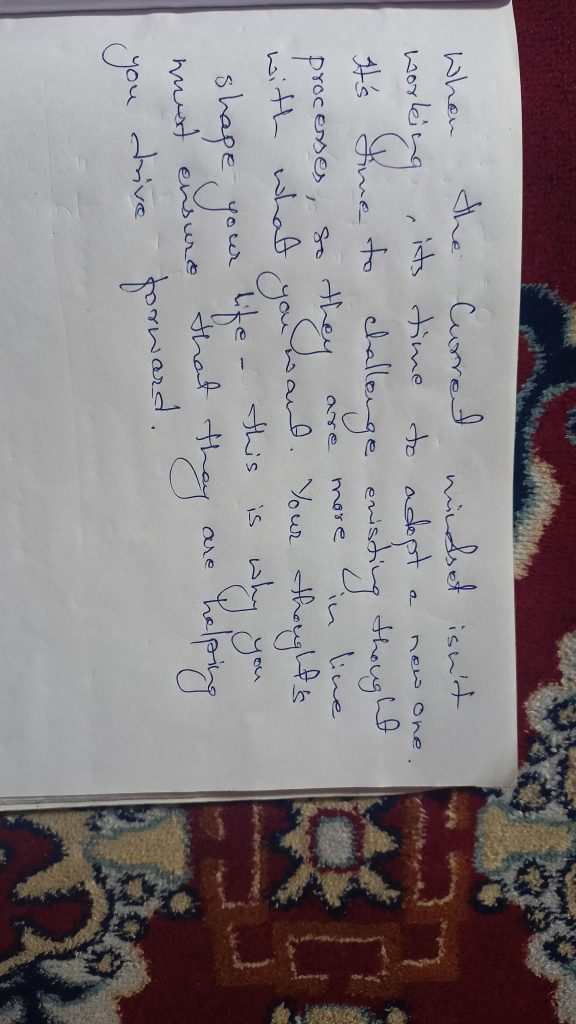 When the Current mindset isn't
working, its time to adopt a new one.
It's time to challenge existing thought
processes, so they are more in line
with what you want. Your thoughts
shape your life - this is why you
must ensure that they are helping
you drive forward.